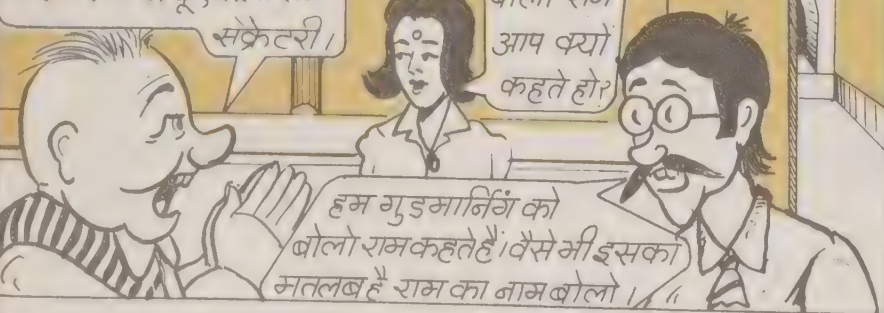 सैक्रेटरी।
आप क्यों
कहते हो?
हम गुडमार्निंग को
बोलो राम कहते हैं। वैसे भी इसका
मतलब है राम का नाम बोलो।